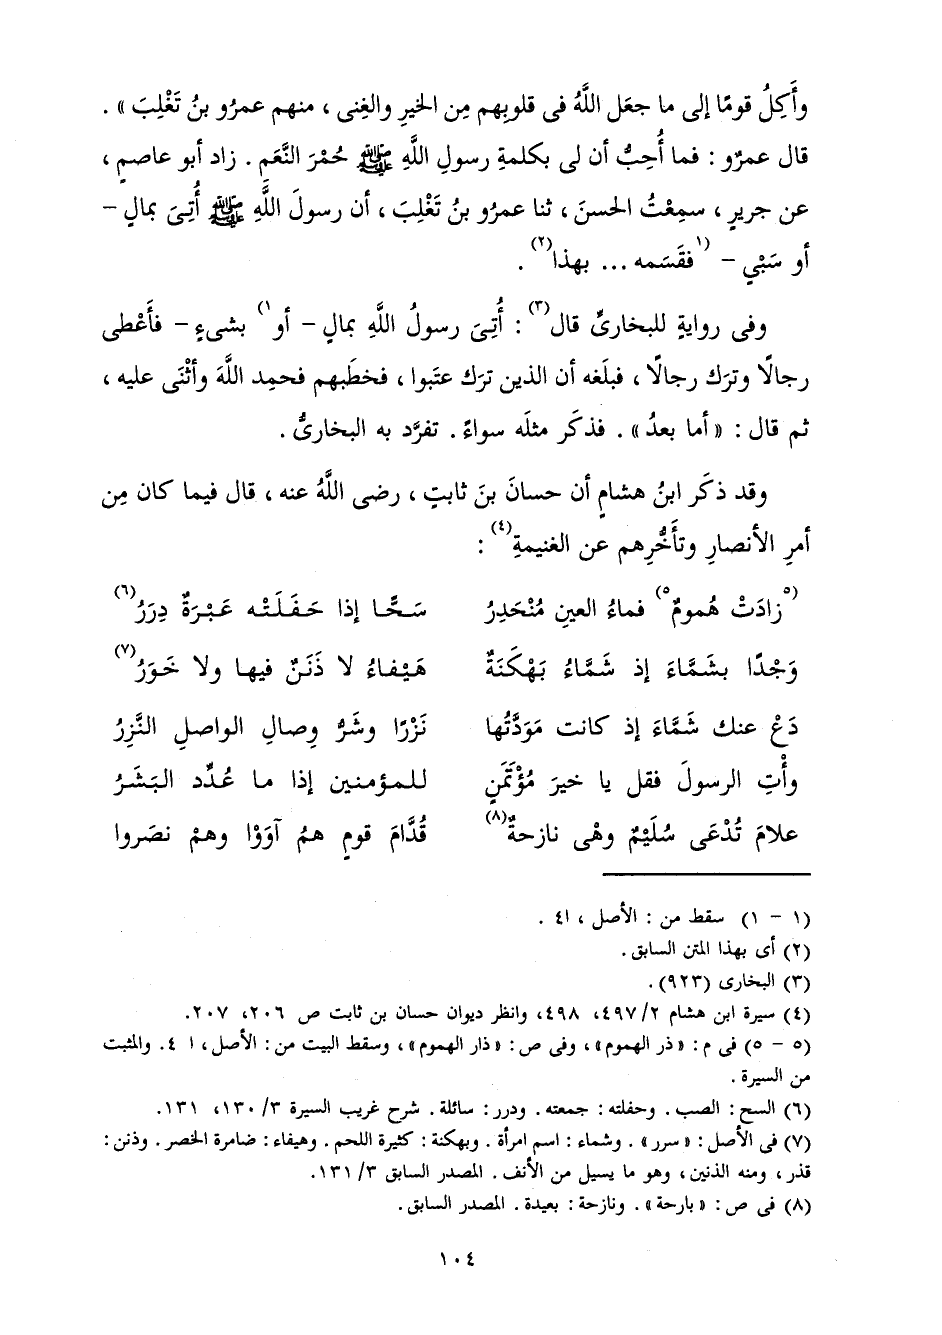 وأَكِلُ قومًا إلى ما جعَل اللَّهُ فى قلوبِهم مِن الخيرِ والغِنى ، منهم عمرُو بنُ تَغْلِبَ » .
قال عمرٌو : فما أُحِبُّ أن لى بكلمةِ رسولِ اللَّهِ ﷺ حُمْرَ النَّعَمِ . زاد أبو عاصمٍ ،
عن جريرٍ ، سمِعْتُ الحسنَ ، ثنا عمرُو بنُ تَغْلِبَ ، أن رسولَ اللَّهِ ﷺ أُتِىَ بمالٍ –
أو سَبْيٍ – (١فقَسَمه ... بهذا(٢) .
وفى روايةٍ للبخارىِّ قال(٣) : أُتِىَ رسولُ اللَّهِ بمالٍ – أو١) بشىءٍ – فأَعْطى
رجالًا وترَك رجالًا ، فبلَغه أن الذين ترَك عتَبوا ، فخطَبهم فحمِد اللَّهَ وأثْنَى عليه ،
ثم قال : « أما بعدُ » . فذكَر مثلَه سواءً . تفرَّد به البخارىُّ .
وقد ذكَر ابنُ هشامٍ أن حسانَ بنَ ثابتٍ ، رضى اللَّهُ عنه ، قال فيما كان مِن
أمرِ الأنصارِ وتأَخُّرِهم عن الغنيمةِ(٤) :
(٥زادَتْ هُمومٌ٥) فماءُ العينِ مُنْحَدِرُ سَحًّا إذا حَفَلَتْه عَبْرَةٌ دِرَرُ(٦)
وَجْدًا بشَمَّاءَ إذ شَمَّاءُ بَهْكَنَةٌ هَيْفاءُ لا ذَنَنٌ فيها ولا خَوَرُ(٧)
دَعْ عنك شَمَّاءَ إذ كانت مَوَدَّتُها نَزْرًا وشَرُّ وِصالِ الواصلِ النَّزِرُ
وأْتِ الرسولَ فقل يا خيرَ مُؤْتَمَنٍ للمؤمنين إذا ما عُدِّد البَشَرُ
علامَ تُدْعَى سُلَيْمٌ وهْى نازحةٌ(٨) قُدَّامَ قومٍ همُ آوَوْا وهمْ نصَروا
(١ – ١) سقط من : الأصل ، ا٤ .
(٢) أى بهذا المتن السابق .
(٣) البخارى (٩٢٣) .
(٤) سيرة ابن هشام ٢/ ٤٩٧، ٤٩٨، وانظر ديوان حسان بن ثابت ص ٢٠٦، ٢٠٧.
(٥ – ٥) فى م : «ذر الهموم» ، وفى ص : «ذار الهموم» ، وسقط البيت من : الأصل ، ا ٤. والمثبت
من السيرة .
(٦) السح : الصب . وحفلته : جمعته . ودرر : سائلة . شرح غريب السيرة ٣/ ١٣٠، ١٣١.
(٧) فى الأصل : «سرر» . وشماء : اسم امرأة . وبهكنة : كثيرة اللحم . وهيفاء : ضامرة الخصر . وذنن :
قذر ، ومنه الذنين ، وهو ما يسيل من الأنف . المصدر السابق ٣/ ١٣١.
(٨) فى ص : «بارحة» . ونازحة : بعيدة . المصدر السابق .
١٠٤